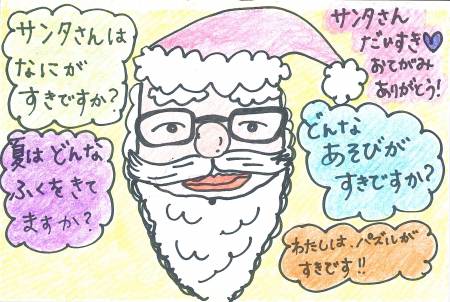 サンタさんは
なにが
すきですか?
サンタさん
だいすき♥
おてがみ
ありがとう!
夏は どんな
ふくをきて
ますか?
どんな
あそびが
すきですか?
わたしは、パズルが
すきです!!